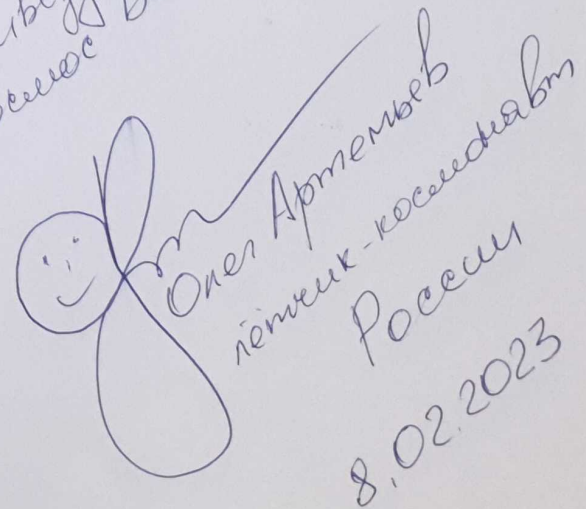 Олег Артемьев
лётчик-космонавт
России
8.02.2023